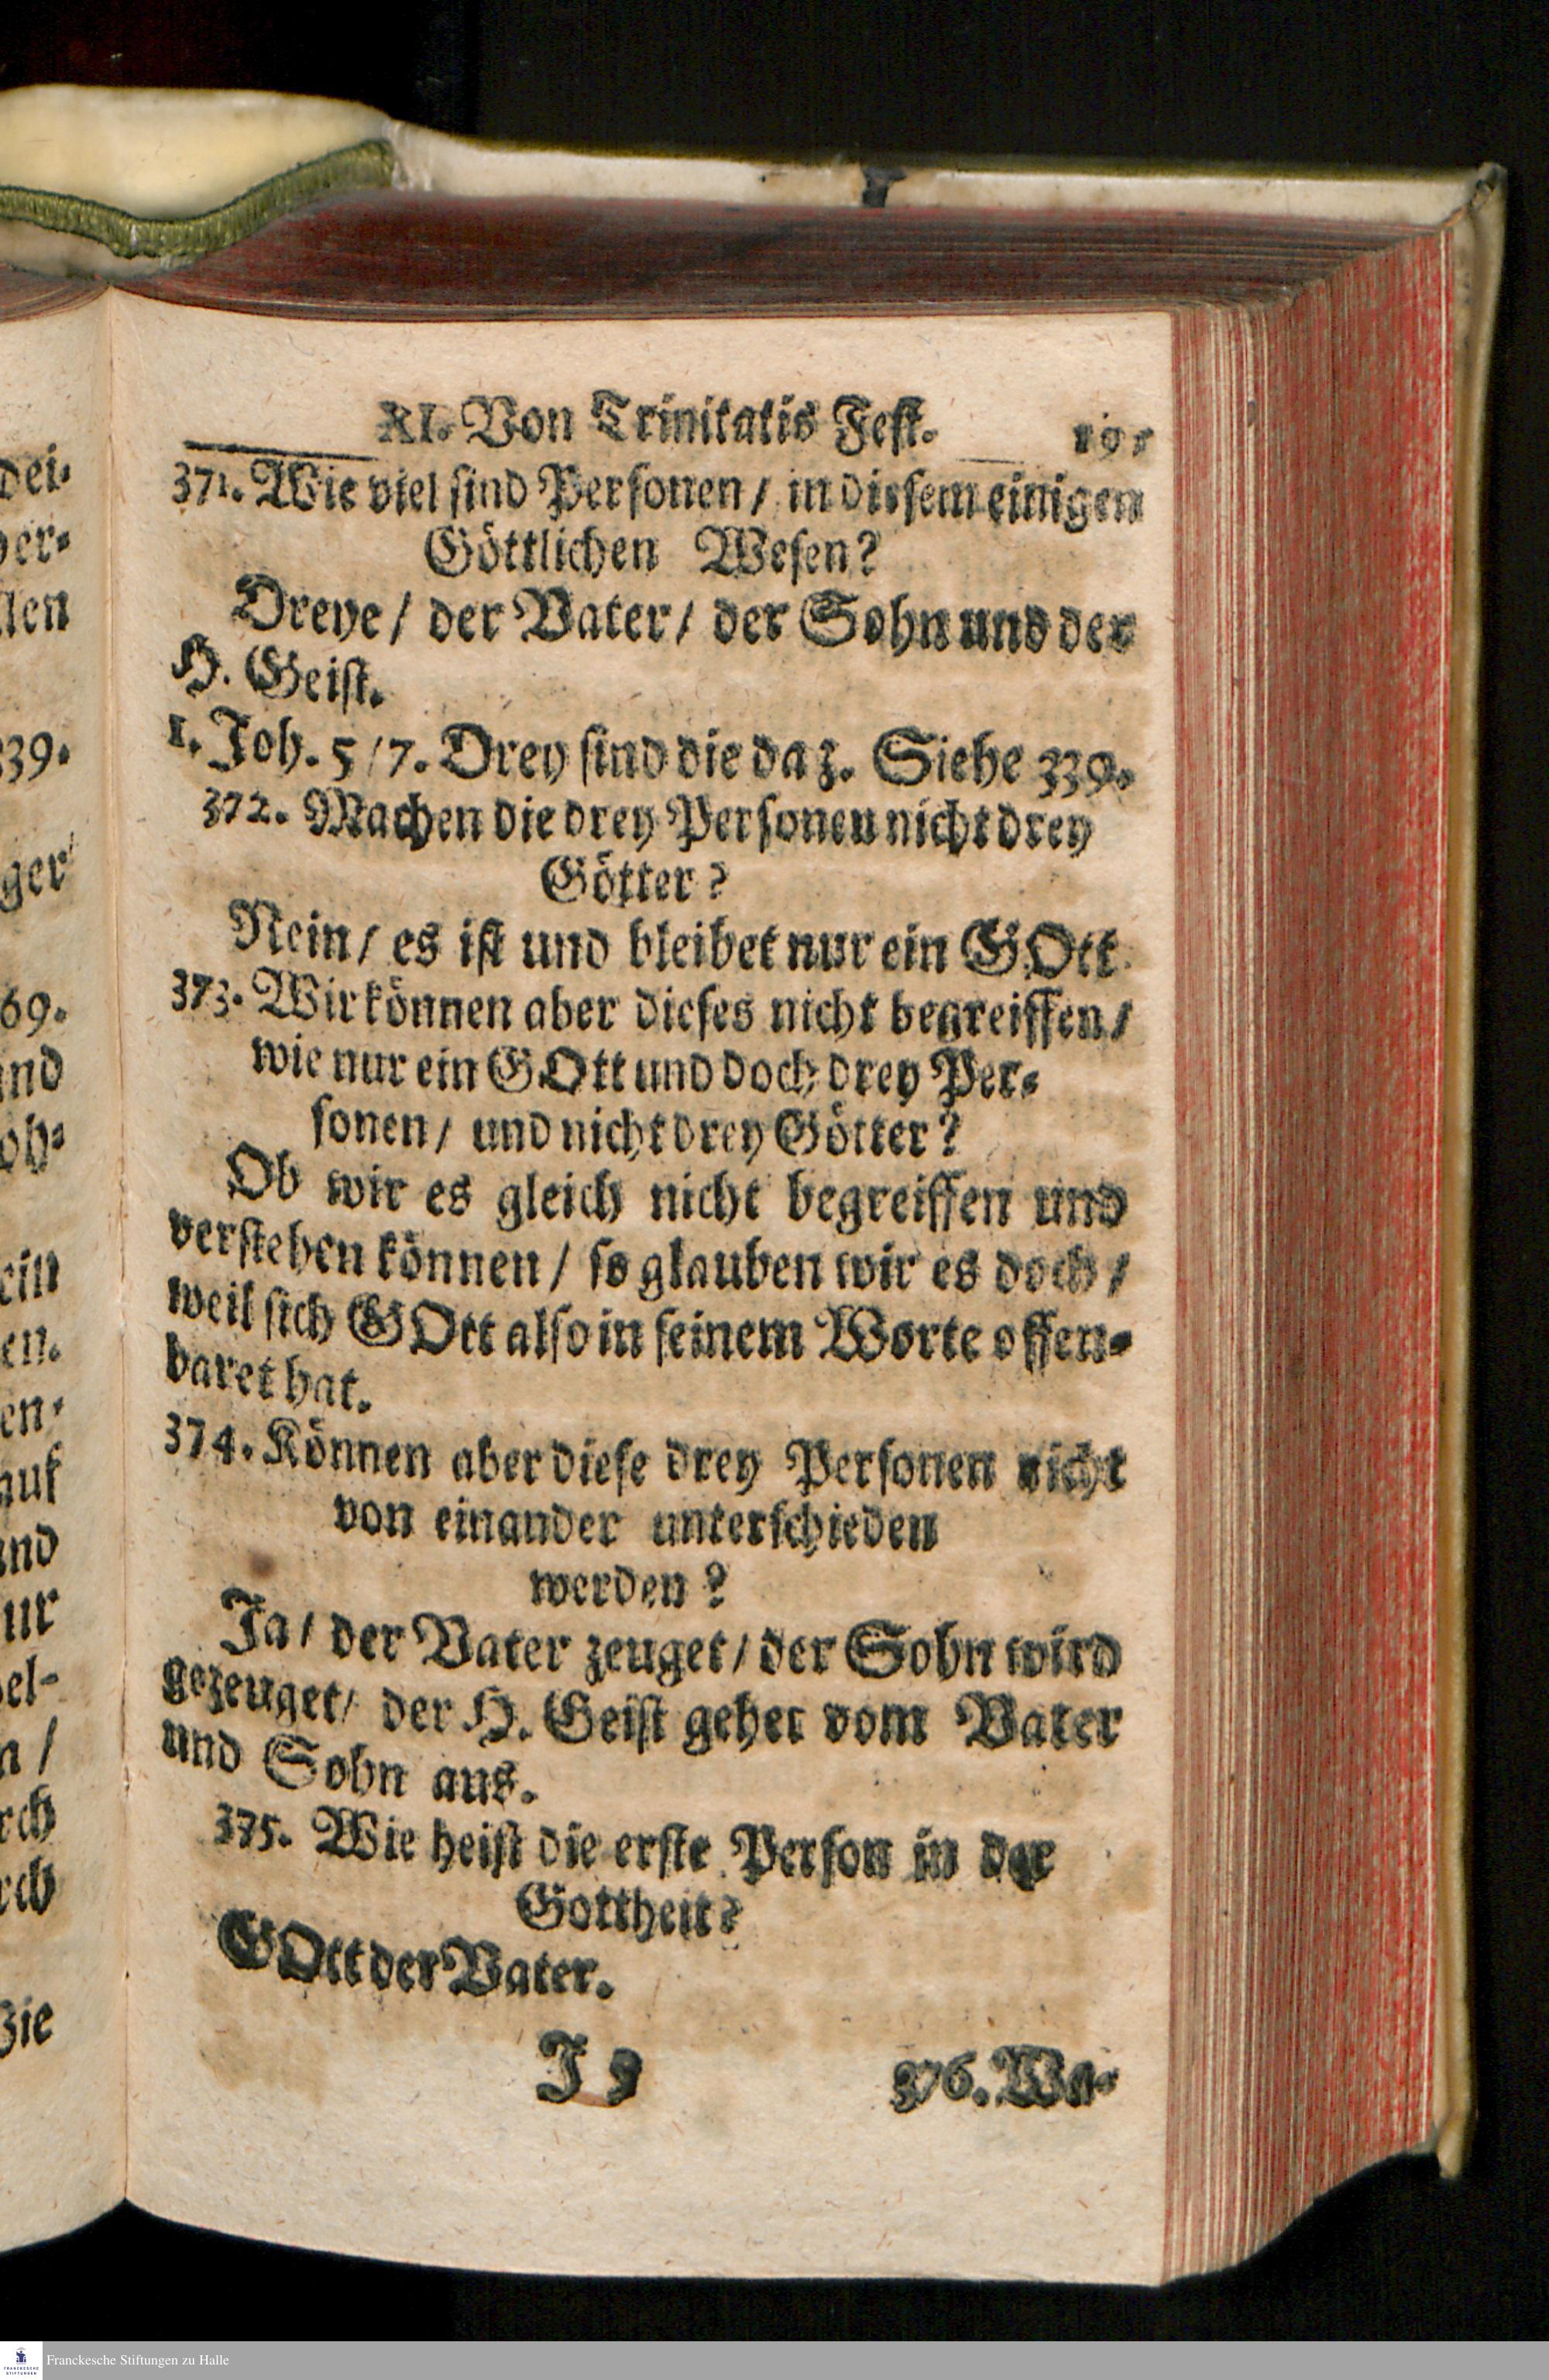 XI. Von Trinitatis Fest.
371. Wie viel sind Personen / in diesem einigen
Göttlichen Wesen?
Dreye / der Vater / der Sohn und der
H. Geist.
1. Joh. 5 / 7. Drey sind die da z. Siehe 339.
372. Machen die drey Personen nicht drey
Götter?
Nein / es ist und bleibet nur ein GOtt
373. Wir können aber dieses nicht begreiffen /
wie nur ein GOtt und doch drey Per-
sonen / und nicht drey Götter?
Ob wir es gleich nicht begreiffen und
verstehen können / so glauben wir es doch /
weil sich GOtt also in seinem Worte offen-
baret hat.
374. Können aber diese drey Personen nicht
von einander unterschieden
werden?
Ja / der Vater zeuget / der Sohn wird
gezeuget / der H. Geist gehet vom Vater
und Sohn aus.
375. Wie heist die erste Person in der
Gottheit?
GOtt der Vater.
376. Wa-
Franckesche Stiftungen zu Halle